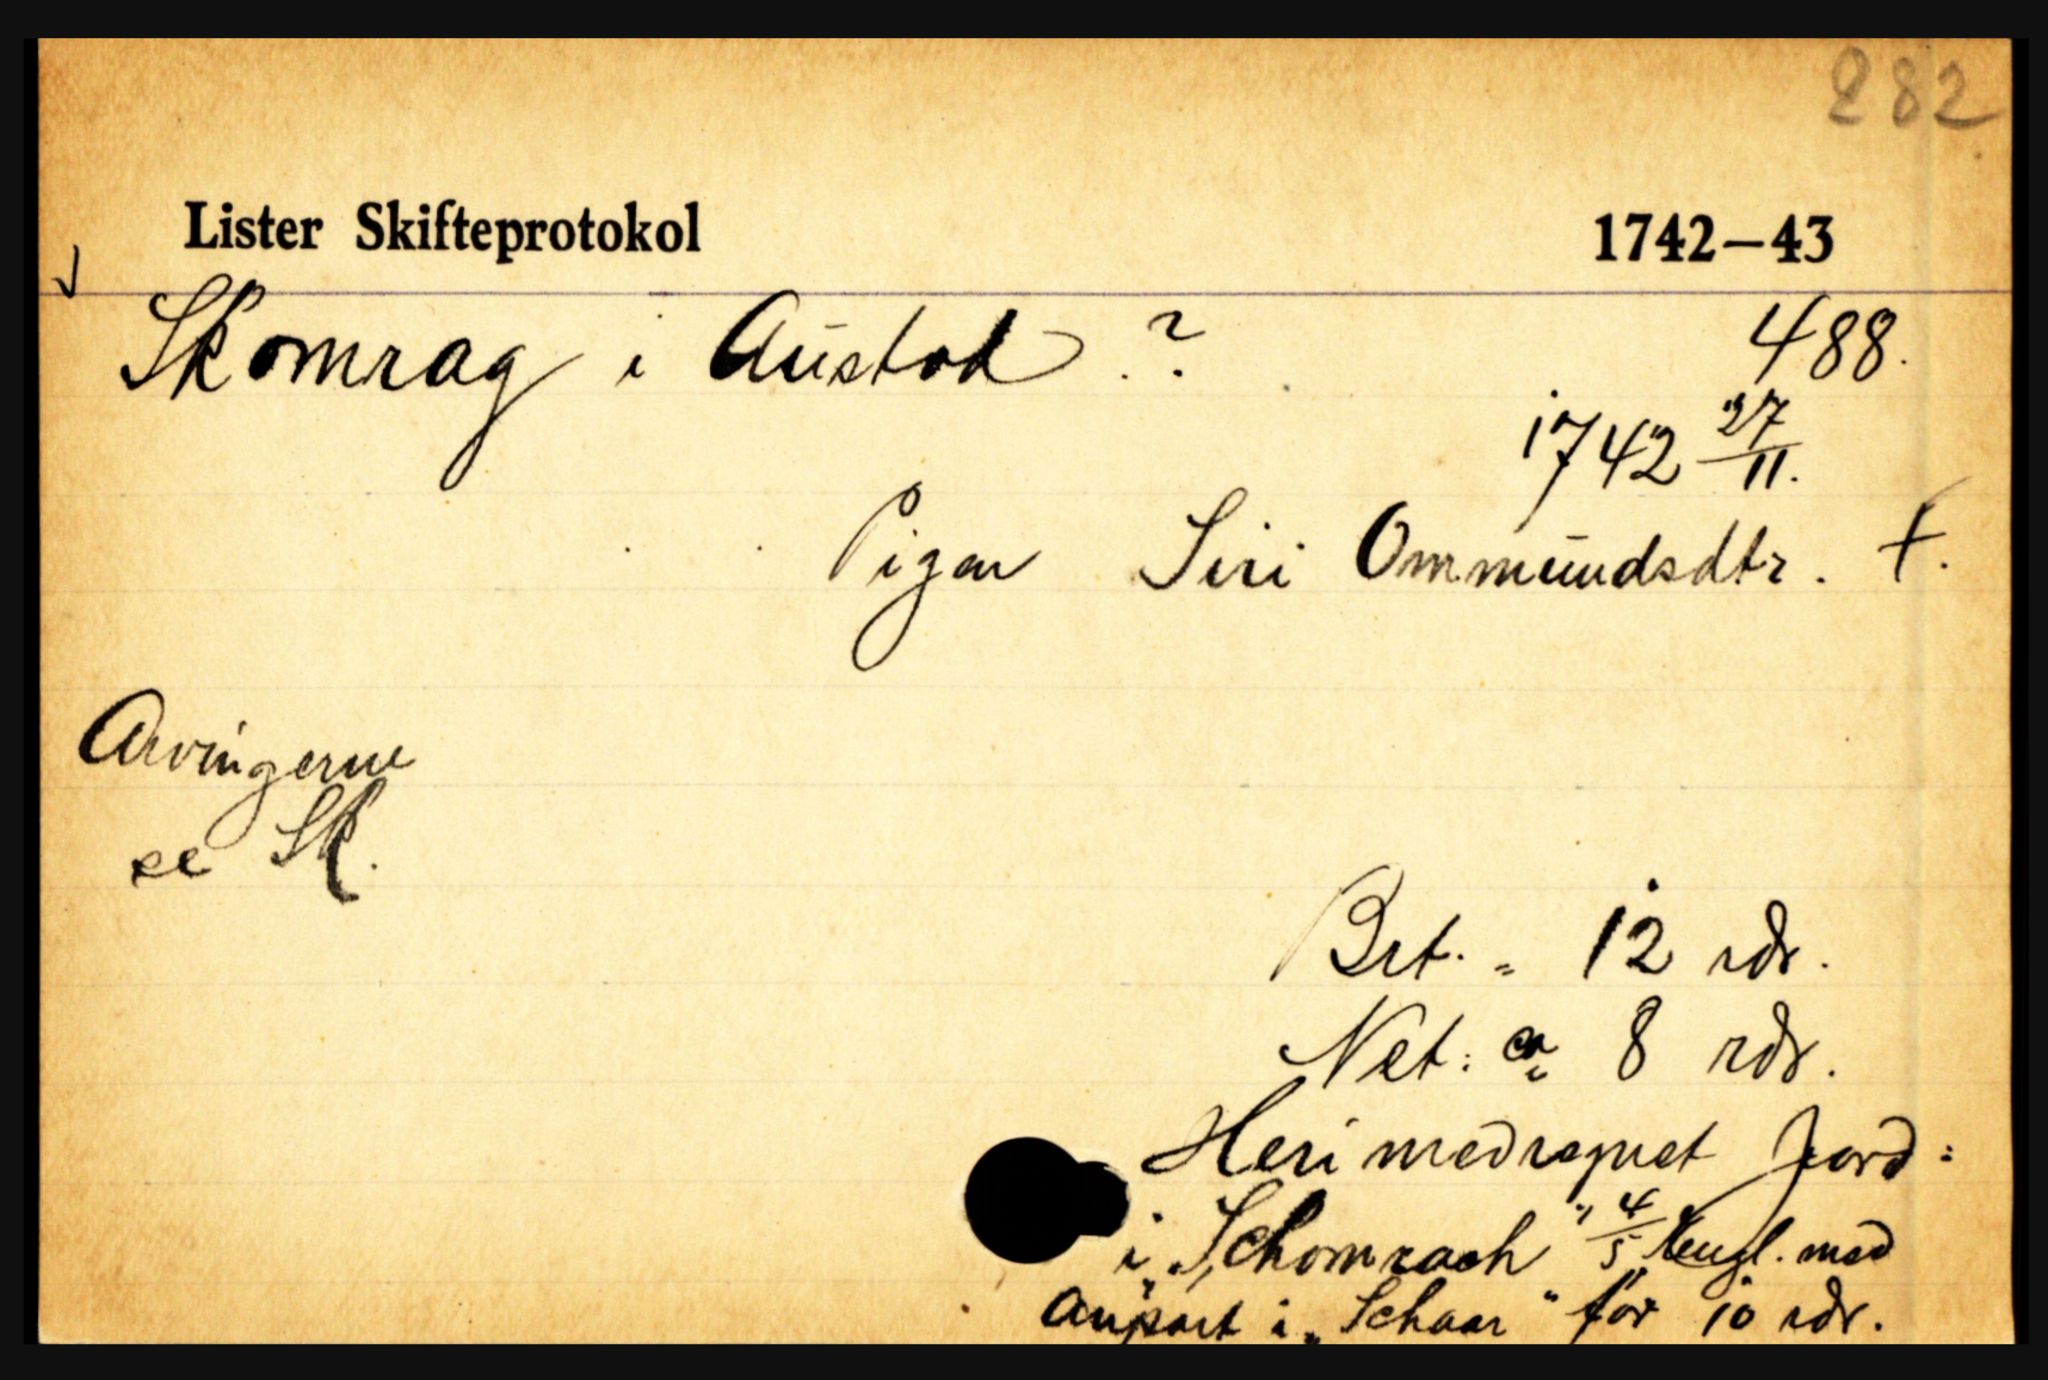 282
Lister Skifteprotokol 1742–43
Skomrag i Austad ? 488.
1742 27/11.
Pigen Siri Ommundsdtr. †.
Arvingerne
se Sk.
Brt. = 12 rdr.
Net: ca 8 rdr.
Heri medregnet Jord:
i "Schomrach" 4/5 Engl. med
anpart i "Schaar" for 10 rdr.